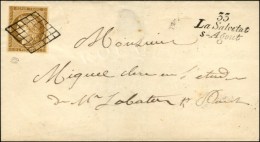 33
La Salvetat
s-Agout
Monsieur
Miquel clerc en l'étude
de Mr